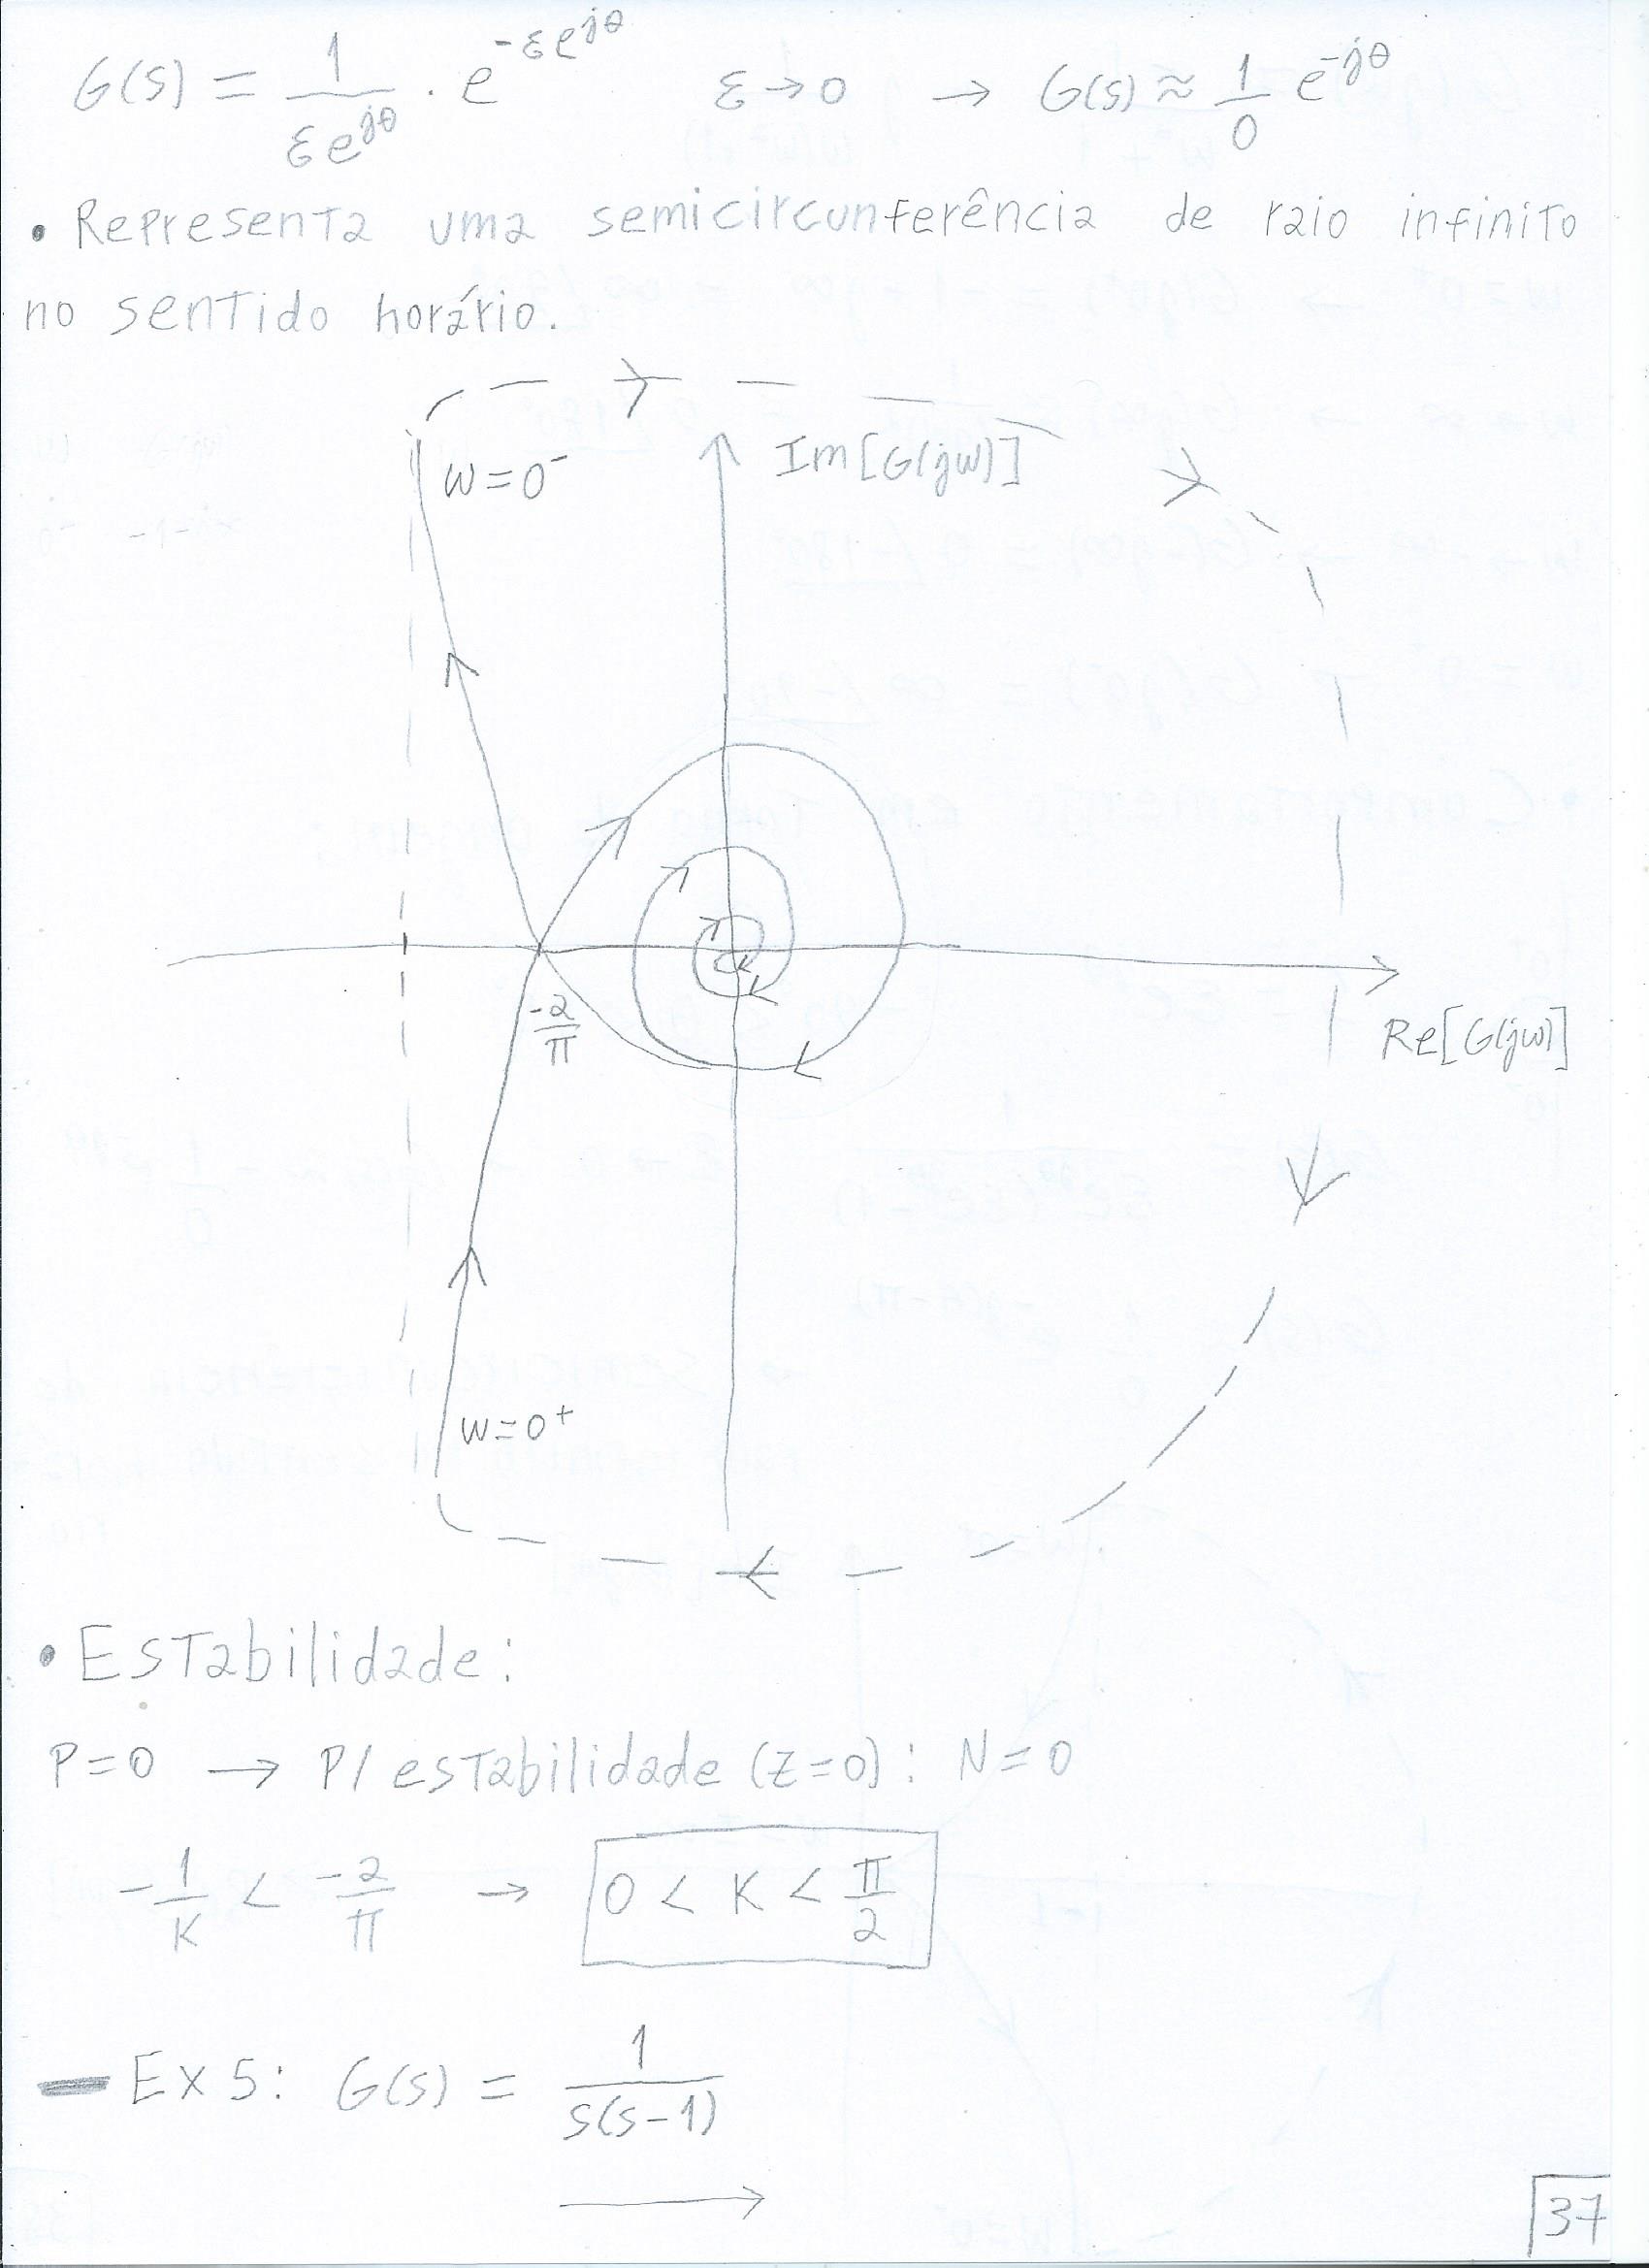 G(s) = 1/(εe^{jθ}) · e^{-εe^{jθ}}   ε→0   → G(s) ≈ 1/0 e^{-jθ}
• Representa uma semicircunferência de raio infinito
no sentido horário.
w=0⁻   Im[G(jw)]
-2/π
Re[G(jw)]
w=0⁺
• Estabilidade:
P=0 → P/ estabilidade (z=0): N=0
-1/K < -2/π → 0 < K < π/2
— Ex 5: G(s) = 1/(s(s-1))
→
37